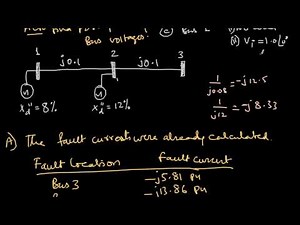 Bus voltages. (c) Bus
(ii) Vf = 1.0∠0°
1 2 3
j0.1 j0.1
Xd" = 8% Xd" = 12%
1/j0.08 = -j12.5
1/j12 = -j8.33
A) The fault currents were already calculated.
Fault Location Fault current
Bus 3 -j5.81 pu
-j13.86 pu